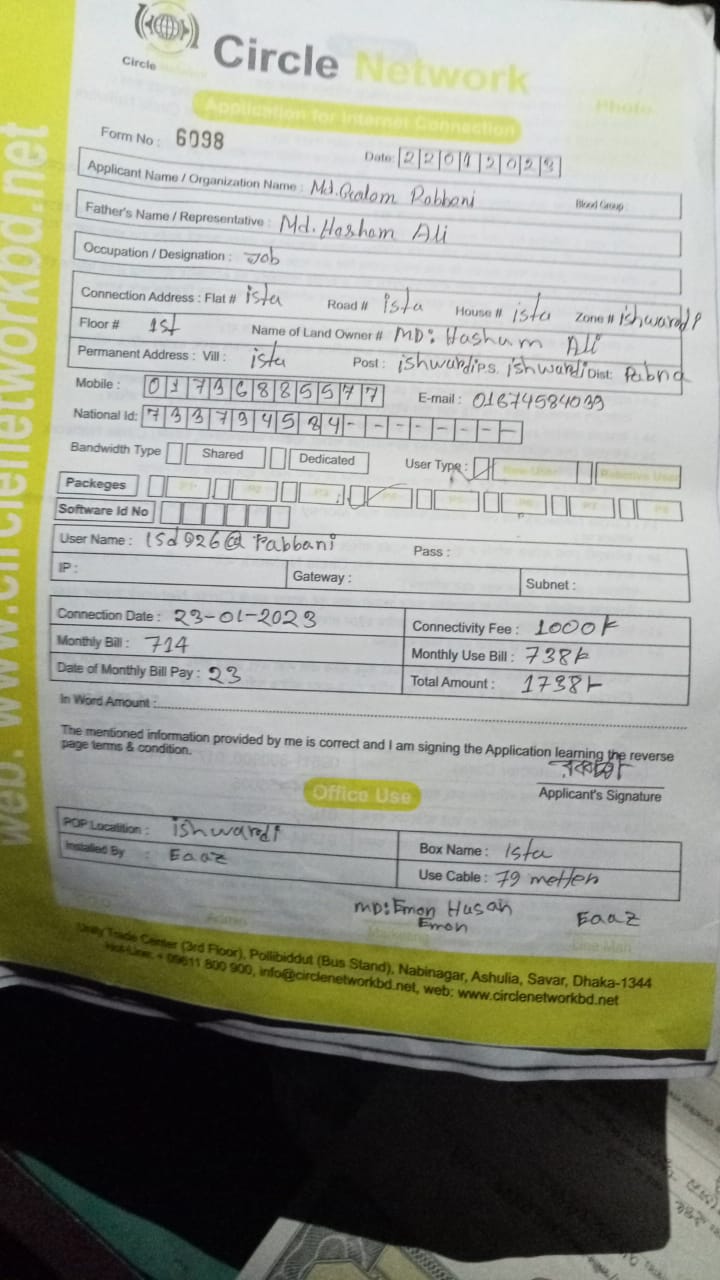 Circle
Circle Network
Application for Internet Connection
Photo
Form No : 6098
Date: 22042023
Applicant Name / Organization Name : Md. Golam Rabbani Blood Group
Father's Name / Representative : Md. Hashem Ali
Occupation / Designation : Job
Connection Address : Flat # ista Road # ista House # ista Zone # ishwardi
Floor # 1st Name of Land Owner # MD: Hashum Ali
Permanent Address : Vill : ista Post : ishwardi P.S. ishwardi Dist: Pabna
Mobile : 01736885577 E-mail : 01674584099
National Id: 7337345844-
Bandwidth Type Shared Dedicated User Type : New User Relative User
Packeges P1 P2 P3 P4 P5 P6 P7 P8
Software Id No
User Name : isd926@rabbani Pass :
IP : Gateway : Subnet :
Connection Date : 23-01-2023 Connectivity Fee : 1000৳
Monthly Bill : 714 Monthly Use Bill : 738৳
Date of Monthly Bill Pay : 23 Total Amount : 1738৳
In Word Amount :
The mentioned information provided by me is correct and I am signing the Application learning the reverse
page terms & condition.
Applicant's Signature
Office Use
POP Locatition : ishwardi Box Name : Ista
Installed By : Eaaz Use Cable : 79 metter
MD: Emon Husan Eaaz
Emon
Admin Marketing Line Man
Unity Trade Center (3rd Floor), Pollibiddut (Bus Stand), Nabinagar, Ashulia, Savar, Dhaka-1344
Hot-Line: + 09611 800 900, info@circlenetworkbd.net, web: www.circlenetworkbd.net
web: www.circlenetworkbd.net